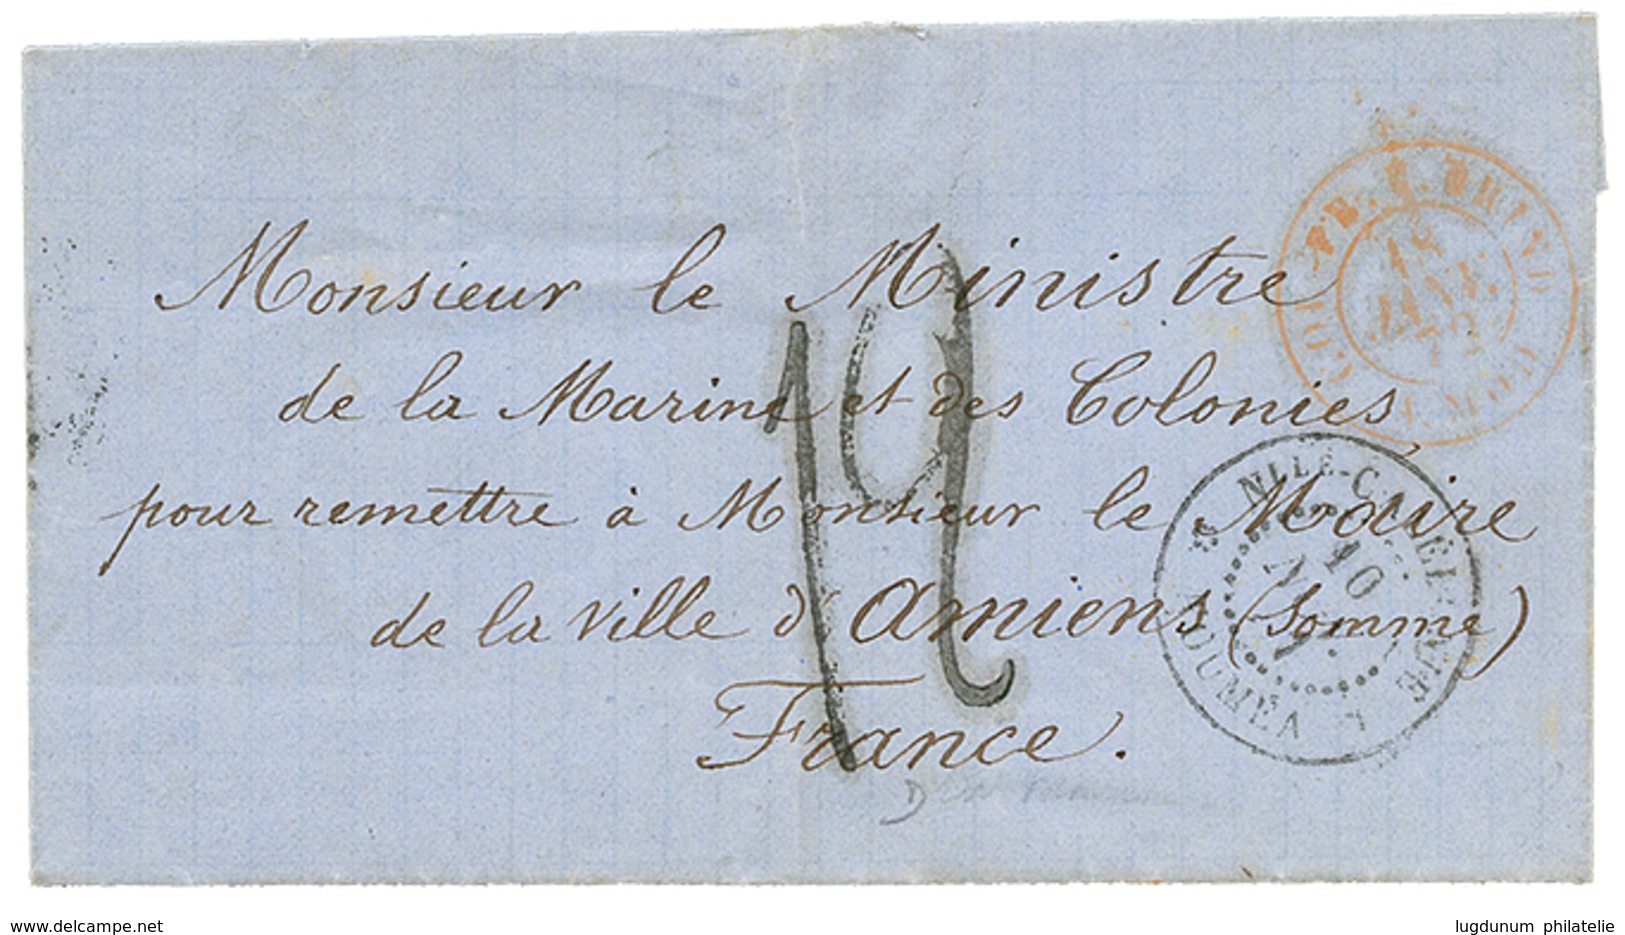 Monsieur le Ministre
de la Marine et des Colonies
pour remettre à Monsieur le Maire
de la ville d'Amiens (Somme)
France.
12
18
JANV.
72
NLLE-CALEDONIE
10
NOUMEA
www.delcampe.net
lugdunum philatelie